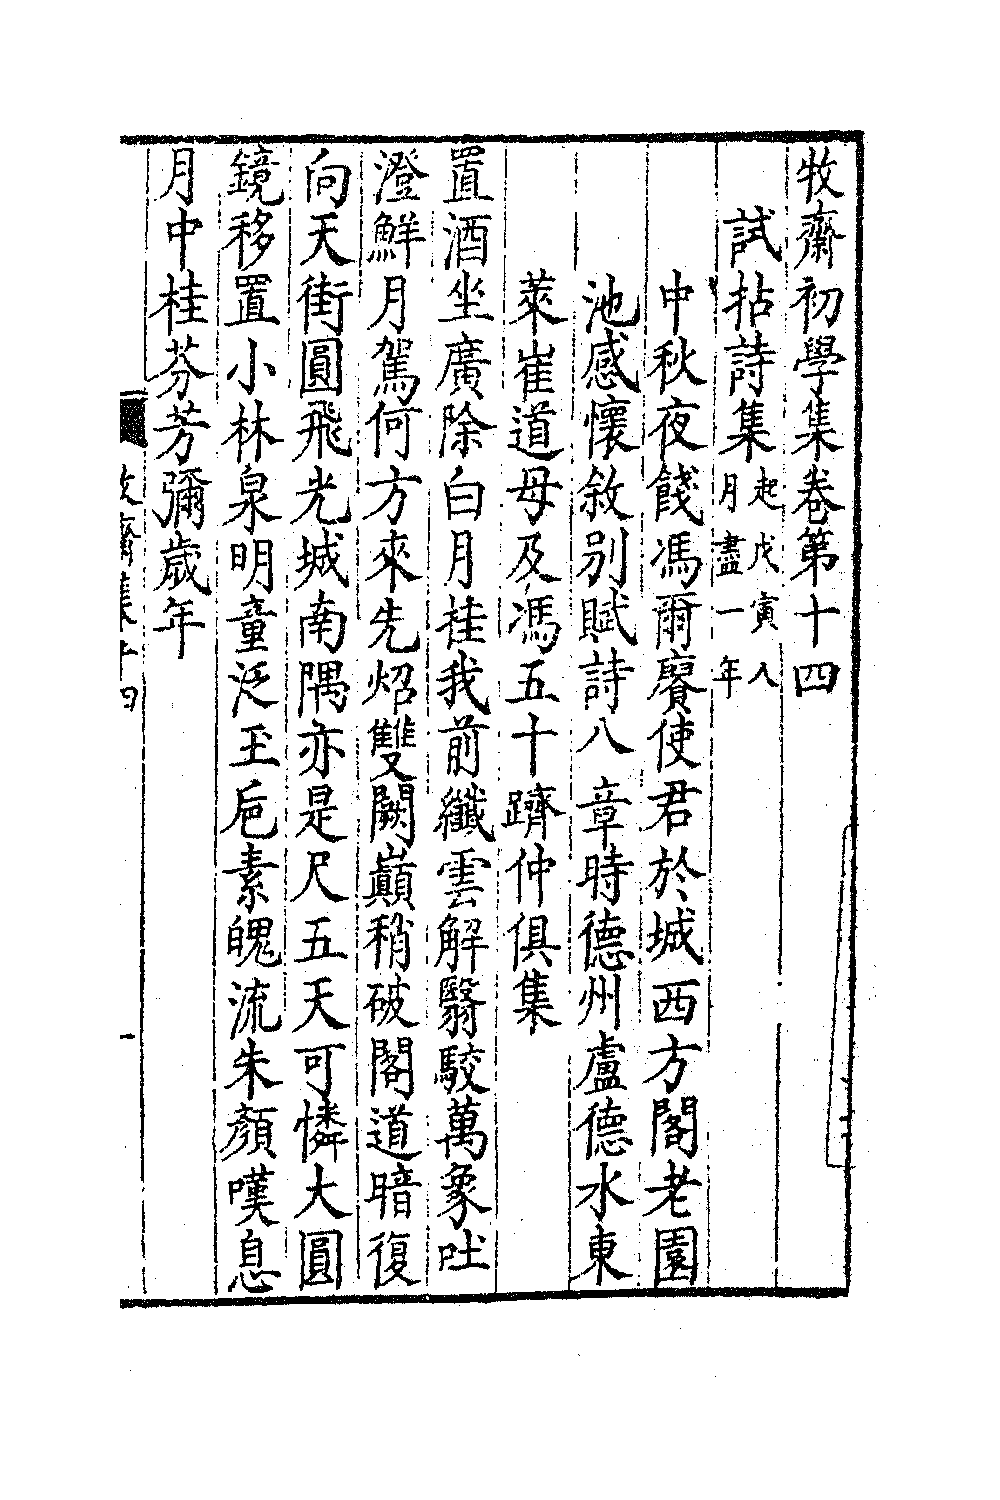 牧齋初學集卷第十四
試拈詩集起戊寅八月盡一年
中秋夜餞馮爾賡使君於城西方閣老園
池感懷敘別賦詩八章時德州盧德水東
萊崔道母及馮五十躋仲俱集
置酒坐廣除白月挂我前纖雲解翳駮萬象吐
澄鮮月駕何方來先炤雙闕巔稍破閣道暗復
向天街圓飛光城南隅亦是尺五天可憐大圓
鏡移置小林泉明童泛玉巵素魄流朱顏嘆息
月中桂芬芳彌歲年
牧齋集十四
一